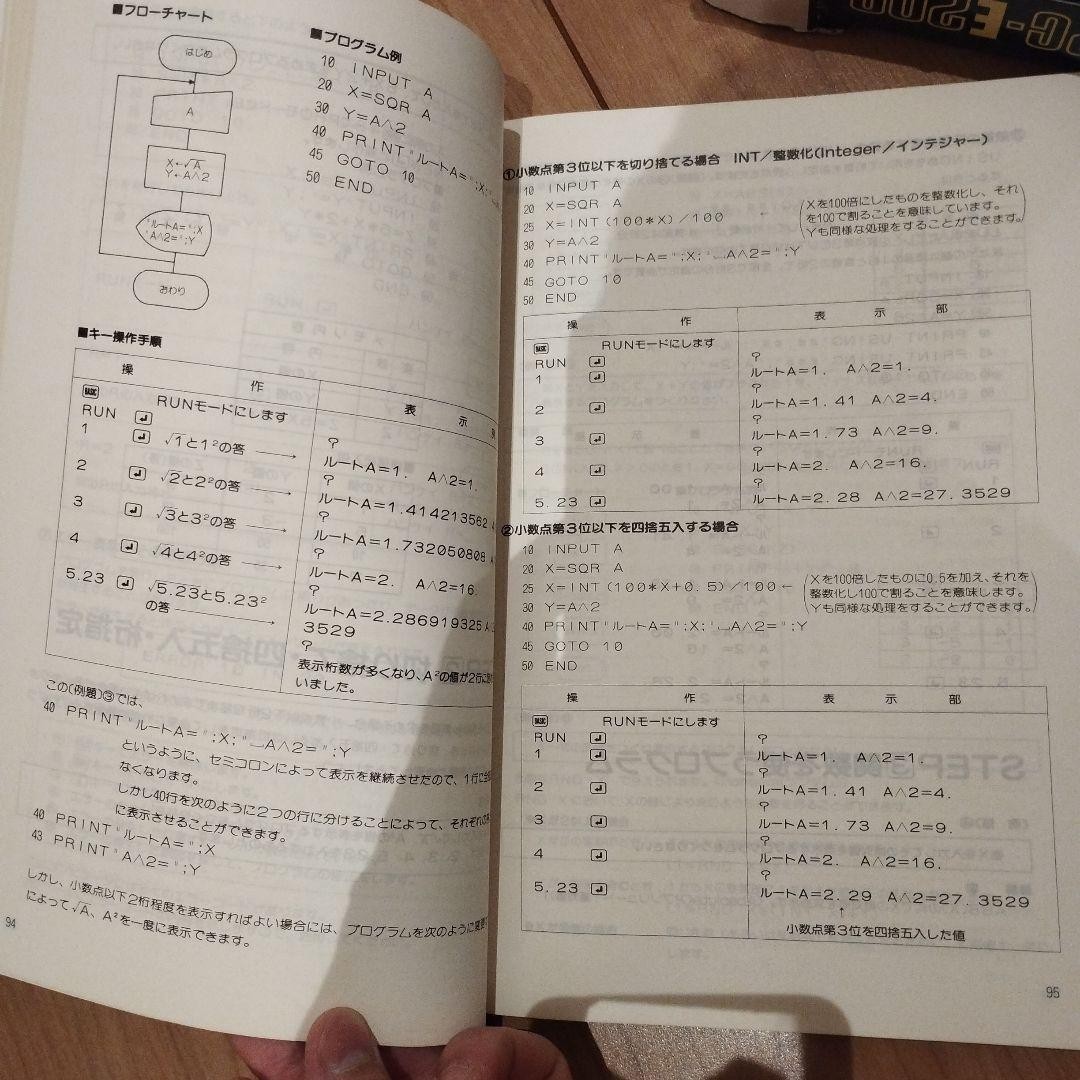 ■フローチャート
はじめ
A
X←√A
Y←A∧2
"ルートA=";X
"A∧2=";Y
おわり
■プログラム例
10 INPUT A
20 X=SQR A
30 Y=A∧2
40 PRINT"ルートA=";X;"
45 GOTO 10
50 END
■キー操作手順
操 作 表 示
BASIC RUNモードにします
RUN ↵ ?
1 ↵ √1と1²の答 → ルートA=1. A∧2=1.
?
2 ↵ √2と2²の答 → ルートA=1.414213562
?
3 ↵ √3と3²の答 → ルートA=1.732050808
?
4 ↵ √4と4²の答 → ルートA=2. A∧2=16.
?
5.23 ↵ √5.23と5.23² ルートA=2.286919325
の答 → 3529
?
表示桁数が多くなり、A²の値が2行に
いました。
この(例題)③では、
40 PRINT"ルートA=";X;"⌴A∧2=";Y
というように、セミコロンによって表示を継続させたので、1行に
なくなります。
しかし40行を次のように2つの行に分けることによって、それぞれ
に表示させることができます。
40 PRINT"ルートA=";X
43 PRINT"A∧2=";Y
しかし、小数点以下2桁程度を表示すればよい場合には、プログラムを次のように変更
によって√A、A²を一度に表示できます。
94
PC-E500
①小数点第3位以下を切り捨てる場合 INT/整数化(Integer/インテジャー)
10 INPUT A
20 X=SQR A
25 X=INT(100*X)/100 ← (Xを100倍にしたものを整数化し、それ
を100で割ることを意味しています。
Yも同様な処理をすることができます。)
30 Y=A∧2
40 PRINT"ルートA=";X;"⌴A∧2=";Y
45 GOTO 10
50 END
操 作 表 示 部
BASIC RUNモードにします
RUN ↵ ?
1 ↵ ルートA=1. A∧2=1.
?
2 ↵ ルートA=1.41 A∧2=4.
?
3 ↵ ルートA=1.73 A∧2=9.
?
4 ↵ ルートA=2. A∧2=16.
?
5.23 ↵ ルートA=2.28 A∧2=27.3529
②小数点第3位以下を四捨五入する場合
10 INPUT A
20 X=SQR A
25 X=INT(100*X+0.5)/100← (Xを100倍したものに0.5を加え、それを
整数化し100で割ることを意味します。
Yも同様な処理をすることができます。)
30 Y=A∧2
40 PRINT"ルートA=";X;"⌴A∧2=";Y
45 GOTO 10
50 END
操 作 表 示 部
BASIC RUNモードにします
RUN ↵ ?
1 ↵ ルートA=1. A∧2=1.
?
2 ↵ ルートA=1.41 A∧2=4.
?
3 ↵ ルートA=1.73 A∧2=9.
?
4 ↵ ルートA=2. A∧2=16.
?
5.23 ↵ ルートA=2.29 A∧2=27.3529
↑
小数点第3位を四捨五入した値
95